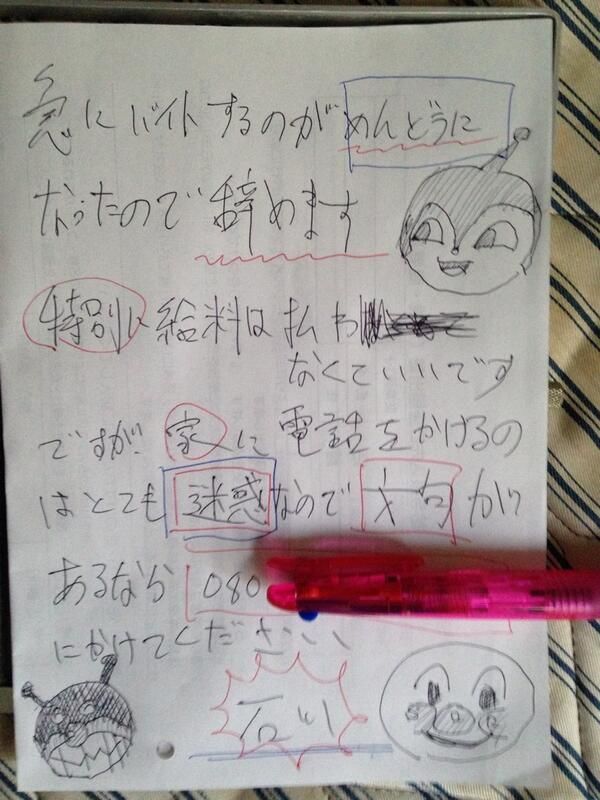 急にバイトするのがめんどうに
なったので辞めます
特別に給料は払わ
なくていいです
ですが家に電話をかけるの
はとても迷惑なので文句が
あるなら 080
にかけてください
石川